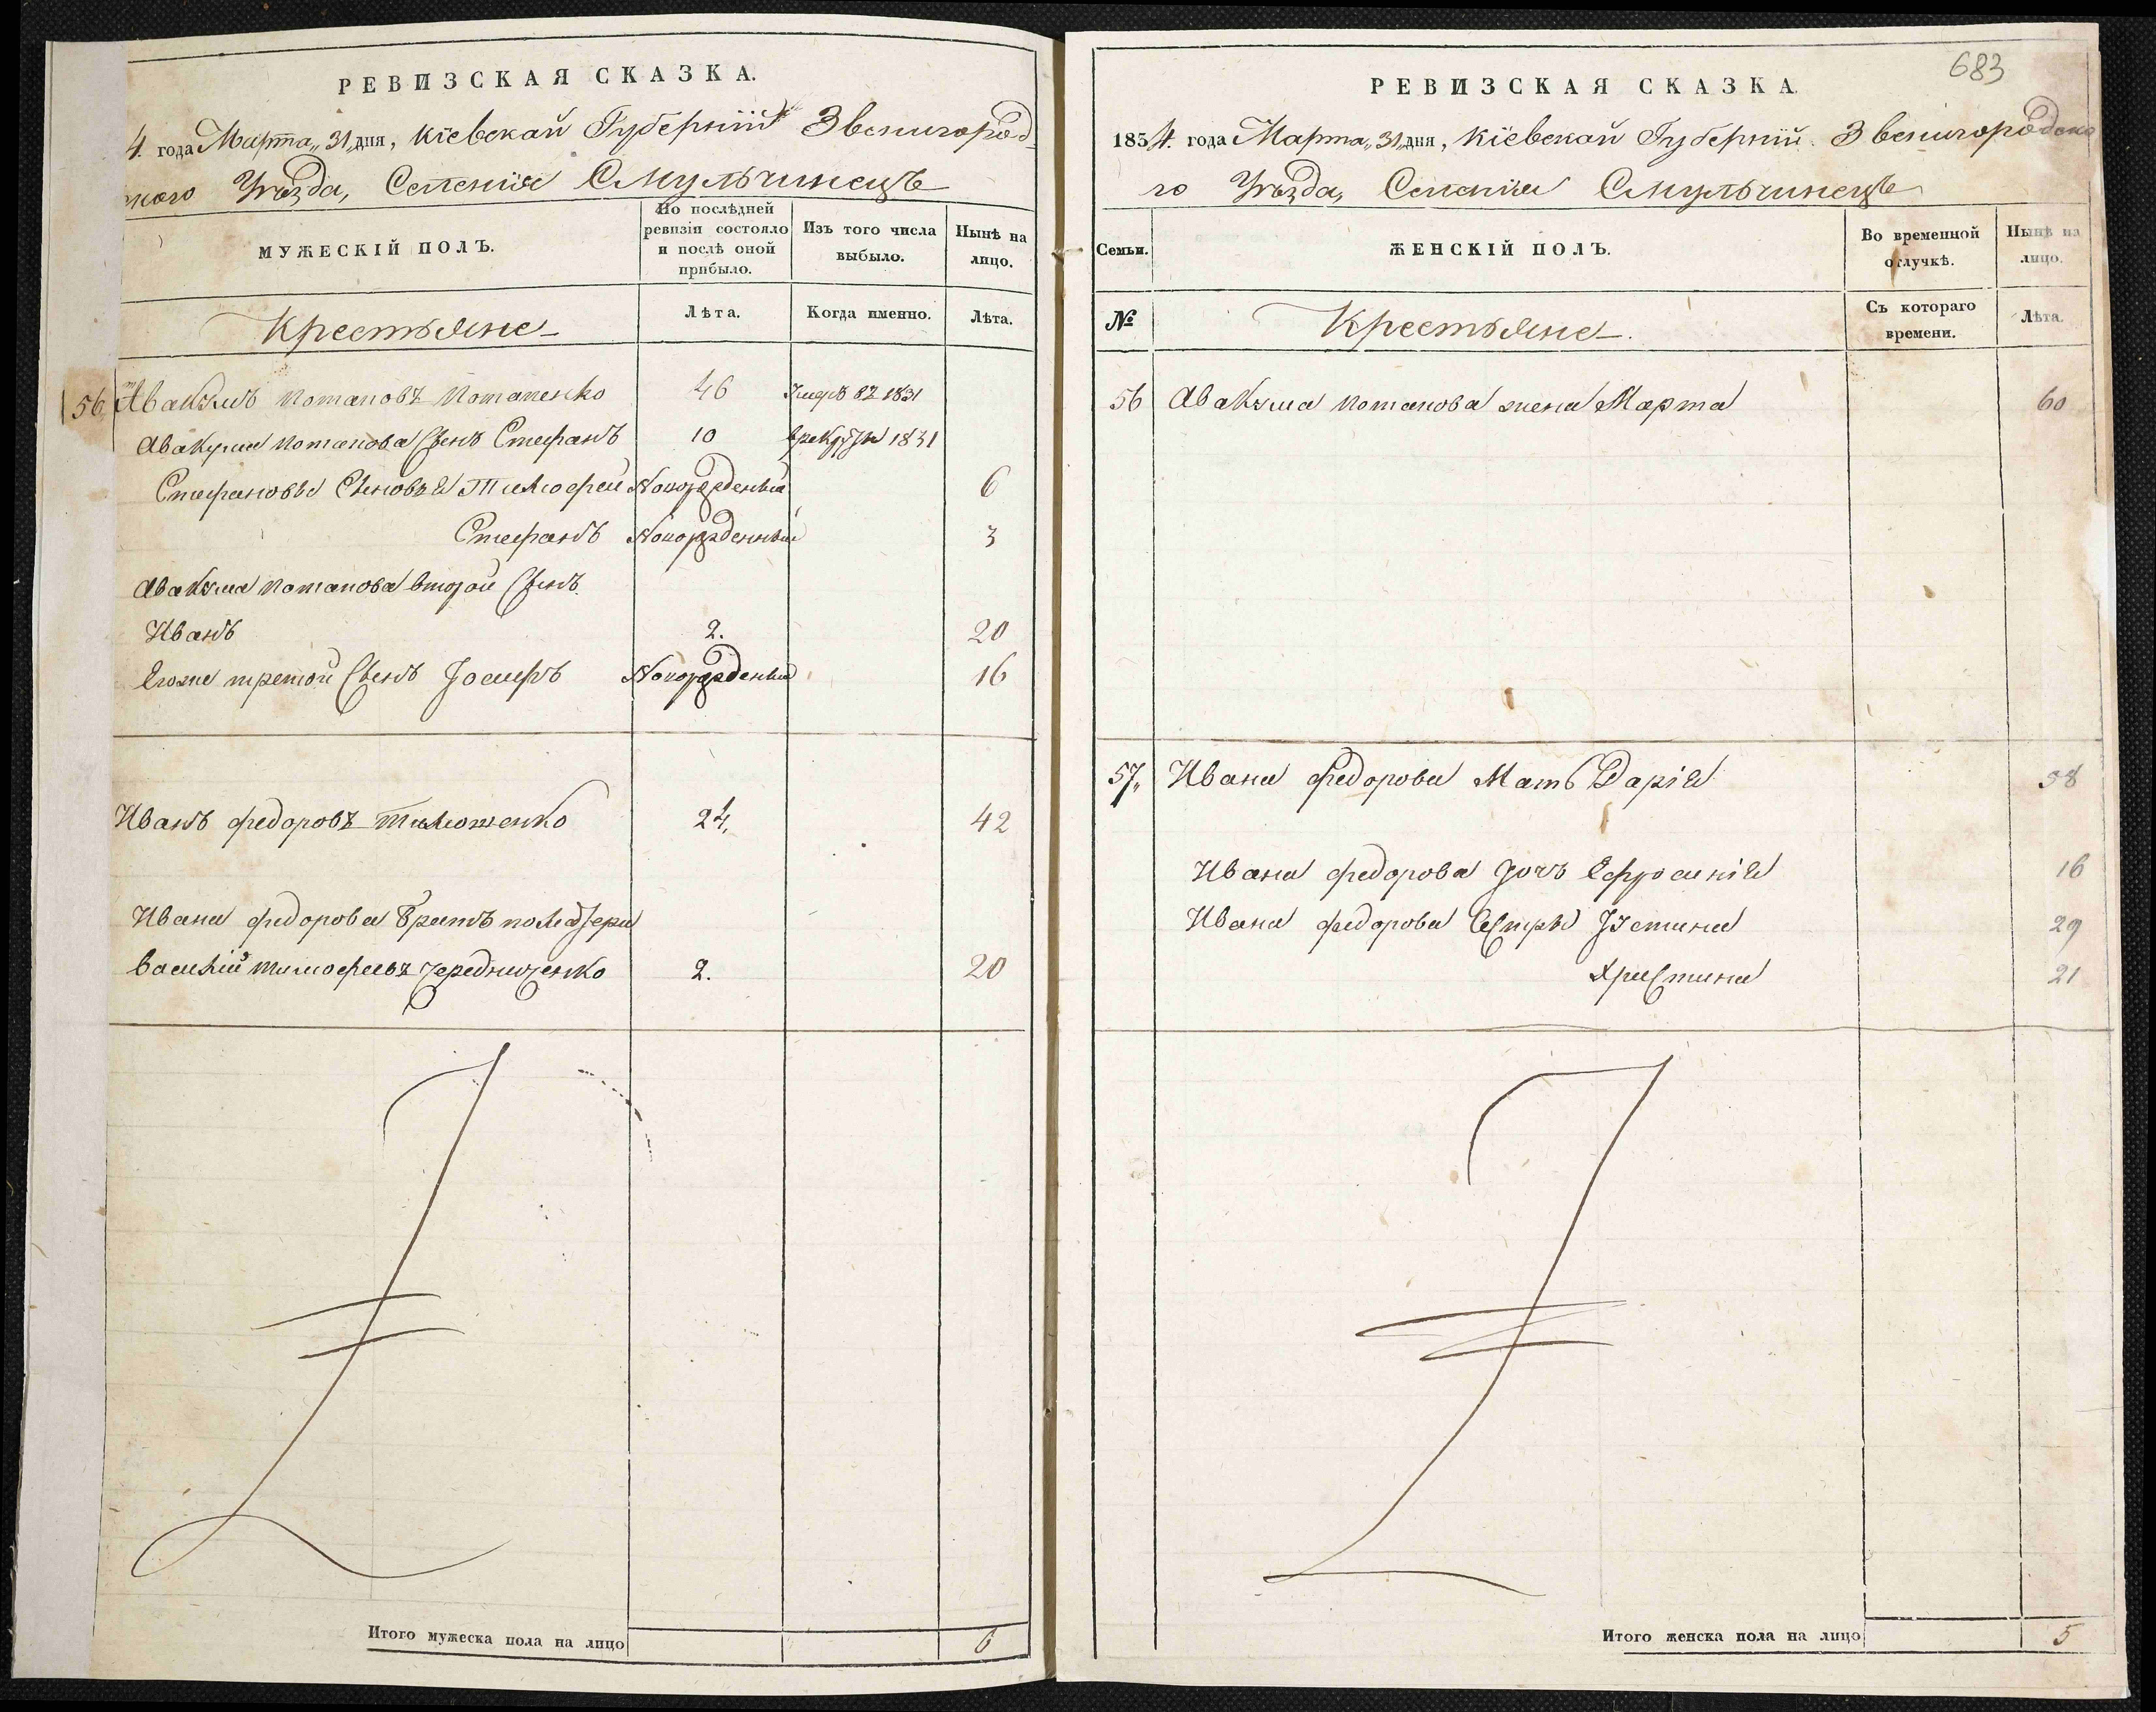 РЕВИЗСКАЯ СКАЗКА.
4. года Марта „31„ дня, Кіевской Губерніи Звенигород-
скаго Уѣзда, Селенія Смульчинецъ
МУЖЕСКІЙ ПОЛЪ.
По послѣдней ревизіи состояло и послѣ оной прибыло.
Изъ того числа выбыло.
Нынѣ на лицо.
Крестьяне
Лѣта.
Когда именно.
Лѣта.
56 Авакумъ Потаповъ Потапенко 46 Умеръ въ 1831
Авакума Потапова Сынъ Стефанъ 10 в рекруты 1831
Стефановы Сыновья Тимофей Новорожденный 6
Стефанъ Новорожденный 3
Авакума Потапова второй Сынъ
Иванъ 2. 20
Егоже третой Сынъ Іосифъ Новорожденный 16
Иванъ Федоровъ Тимошенко 24, 42
Ивана Федорова братъ по матери
Василій Тимофеевъ Чередниченко 2. 20
Итого мужеска пола на лицо 6
683
РЕВИЗСКАЯ СКАЗКА.
1854. года Марта „31„ дня, Кіевской Губерніи Звенигородска
го Уѣзда, Селенія Смульчинецъ
Семьи.
ЖЕНСКІЙ ПОЛЪ.
Во временной отлучкѣ.
Нынѣ на лицо.
№
Крестьяне.
Съ котораго времени.
Лѣта.
56 Авакума Потапова жена Марта 60
57„ Ивана Федорова Мать Дарія 58
Ивана Федорова дочь Ефросинія 16
Ивана Федорова Сестры Устина 29
Христина 21
Итого женска пола на лицо 5